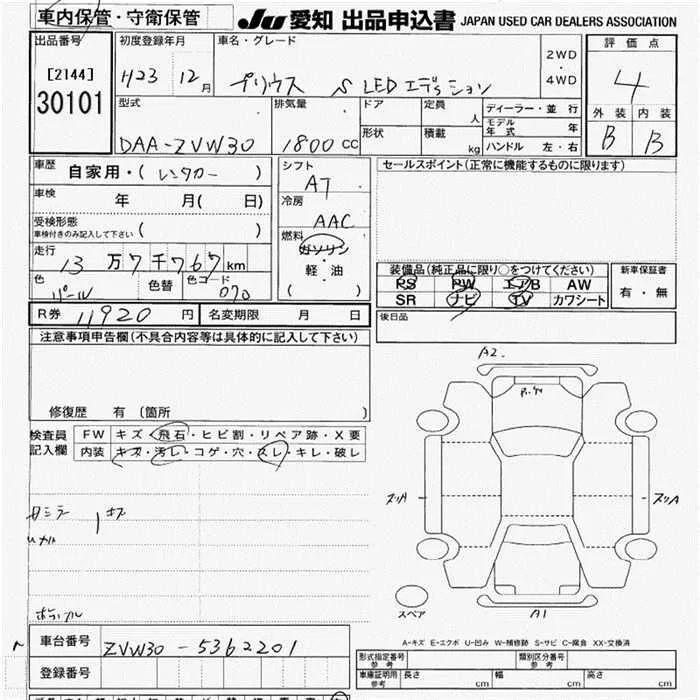 車内保管・守衛保管
JU 愛知 出品申込書 JAPAN USED CAR DEALERS ASSOCIATION
出品番号 初度登録年月 車名・グレード 評価点
[2144] H23 12月 プリウス S LED エディション 2WD・4WD 4
30101
型式 排気量 ドア 定員 人 ディーラー・並行 外装 内装
モデル年式 年
DAA-ZVW30 1800 CC 形状 積載 kg ハンドル 左・右 B B
車歴 自家用・(レンタカー) シフト AT セールスポイント(正常に機能するものに限ります)
車検 年 月( 日) 冷房 AAC
受検形態 ( )
車検付きのみ記入して下さい
燃料 ガソリン・軽油 ( )
走行 13万7千767km
色 パール 色替 色コード 070
装備品(純正品に限り○をつけてください) 新車保証書
PS PW エアB AW 有・無
SR ナビ TV カワシート
R券 11920円 名変期限 月 日 後日品
注意事項申告欄(不具合内容等は具体的に記入して下さい)
A2
修復歴 有(箇所 )
検査員記入欄 FW キズ・飛石・ヒビ割・リペア跡・X要
内装 キズ・汚レ・コゲ・穴・スレ・キレ・破レ
スペア A1
A-キズ E-エクボ U-凹み W-補修跡 S-サビ C-腐食 XX-交換済
車台番号 ZVW30-5362201
登録番号
形式指定番号 参考 類別区分番号 参考
車庫証明用 参考 長さ cm 幅 cm 高さ cm